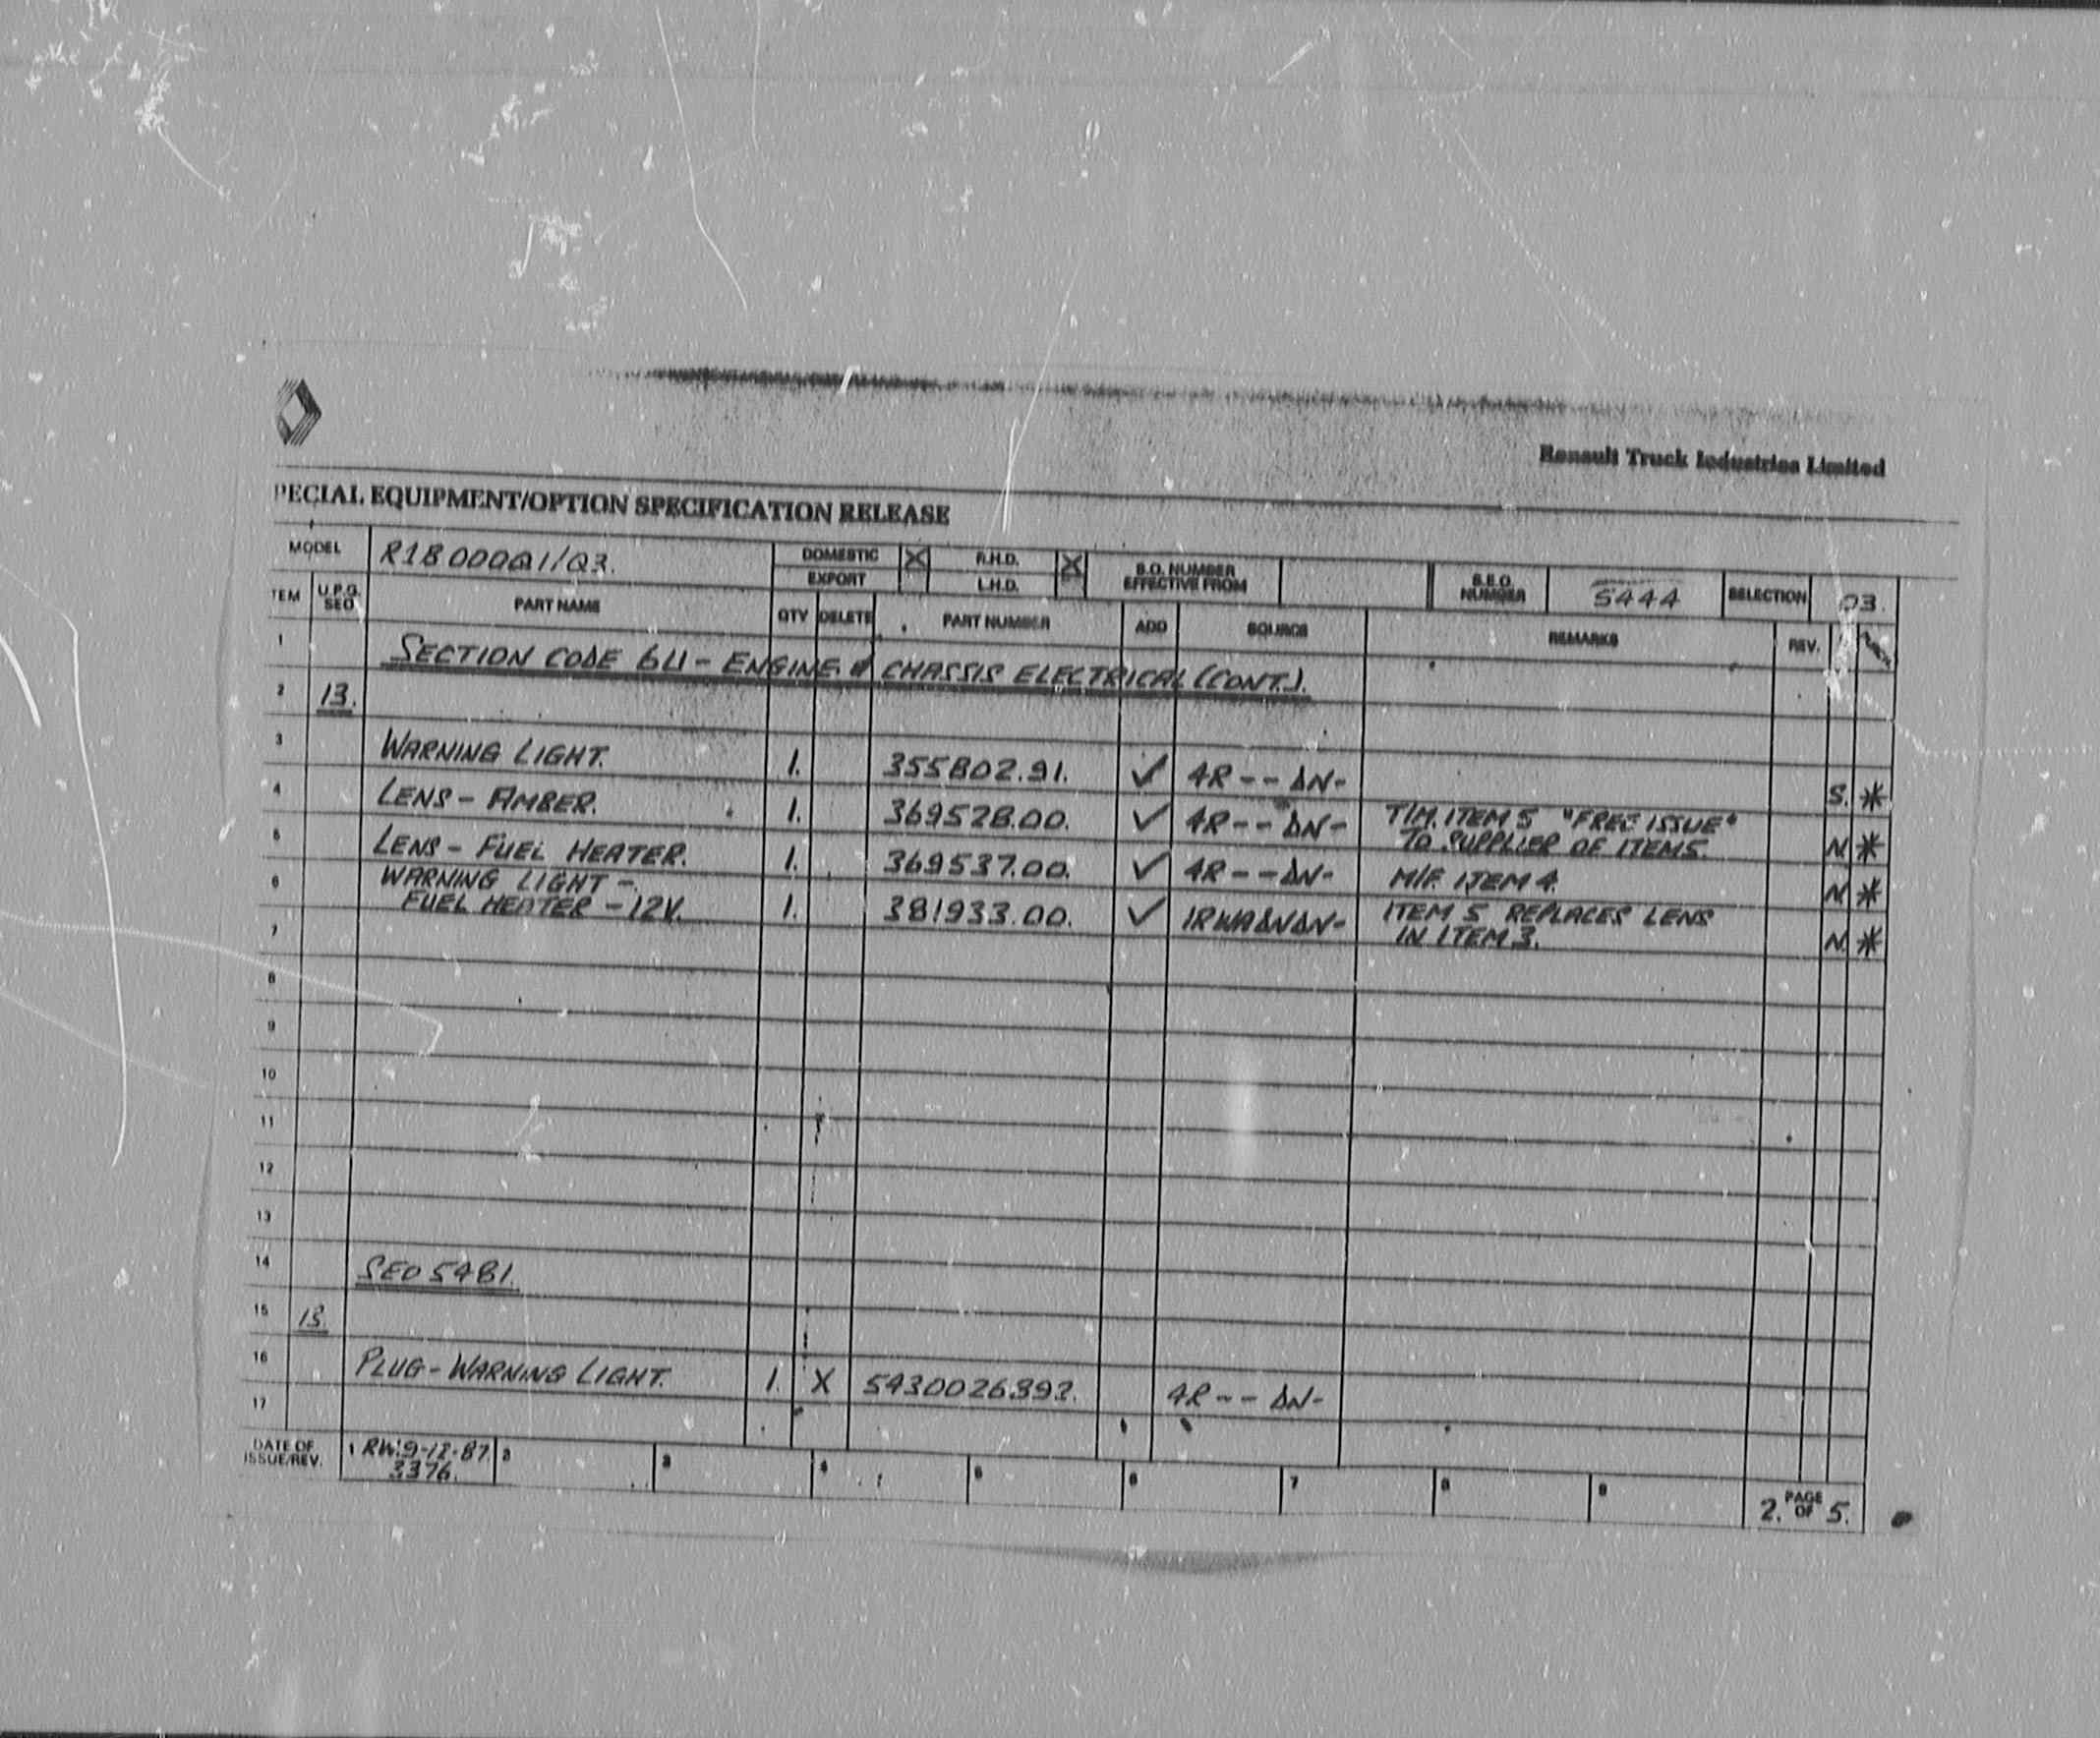 Renault Truck Industries Limited
PECIAL EQUIPMENT/OPTION SPECIFICATION RELEASE
MODEL R1B000Q1/Q3. DOMESTIC X R.H.D. X S.O. NUMBER EFFECTIVE FROM S.E.O. NUMBER 5444 SELECTION 03.
EXPORT L.H.D.
TEM U.P.G. SEO PART NAME QTY DELETE PART NUMBER ADD SOURCE REMARKS REV.
1 SECTION CODE 6U - ENGINE & CHASSIS ELECTRICAL (CONT.).
2 13.
3 WARNING LIGHT. 1. 355802.91. ✓ 4R--ΔN- S. *
4 LENS - AMBER. 1. 369528.00. ✓ 4R--ΔN- T/M. ITEM 5 "FREE ISSUE"
TO SUPPLIER OF ITEM 5. N *
5 LENS - FUEL HEATER. 1. 369537.00. ✓ 4R--ΔN- M/F. ITEM 4. N *
6 WARNING LIGHT -
FUEL HEATER - 12V. 1. 381933.00. ✓ 1RWAΔNΔN- ITEM 5 REPLACES LENS
IN ITEM 3. N *
7
8
9
10
11
12
13
14 SEO 5481.
15 13.
16 PLUG - WARNING LIGHT. 1. X 5430026392. 4R--ΔN-
17
DATE OF ISSUE/REV. 1 RW:9-12-87. 2 3 4 5 6 7 8 9 2. PAGE OF 5.
3376.